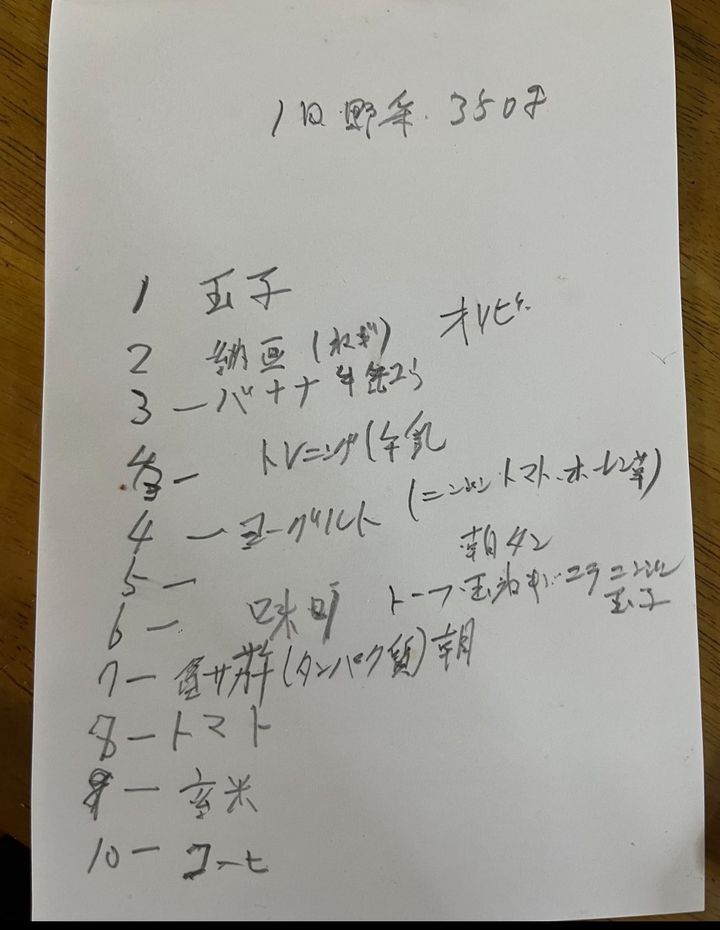 1日野菜 350g
1 玉子
2 納豆 (ネギ)
3 ー バナナ
ト レーニング(牛乳
4 ー ヨーグルト (ニンジン トマト ホーレン草)
5 ー
朝 タン
6 ー 味噌 トーフ 玉ねぎ ニラ ニンジン
玉子
7 ー (タンパク質) 朝
8 ー トマト
9 ー 玄米
10 ー コーヒ